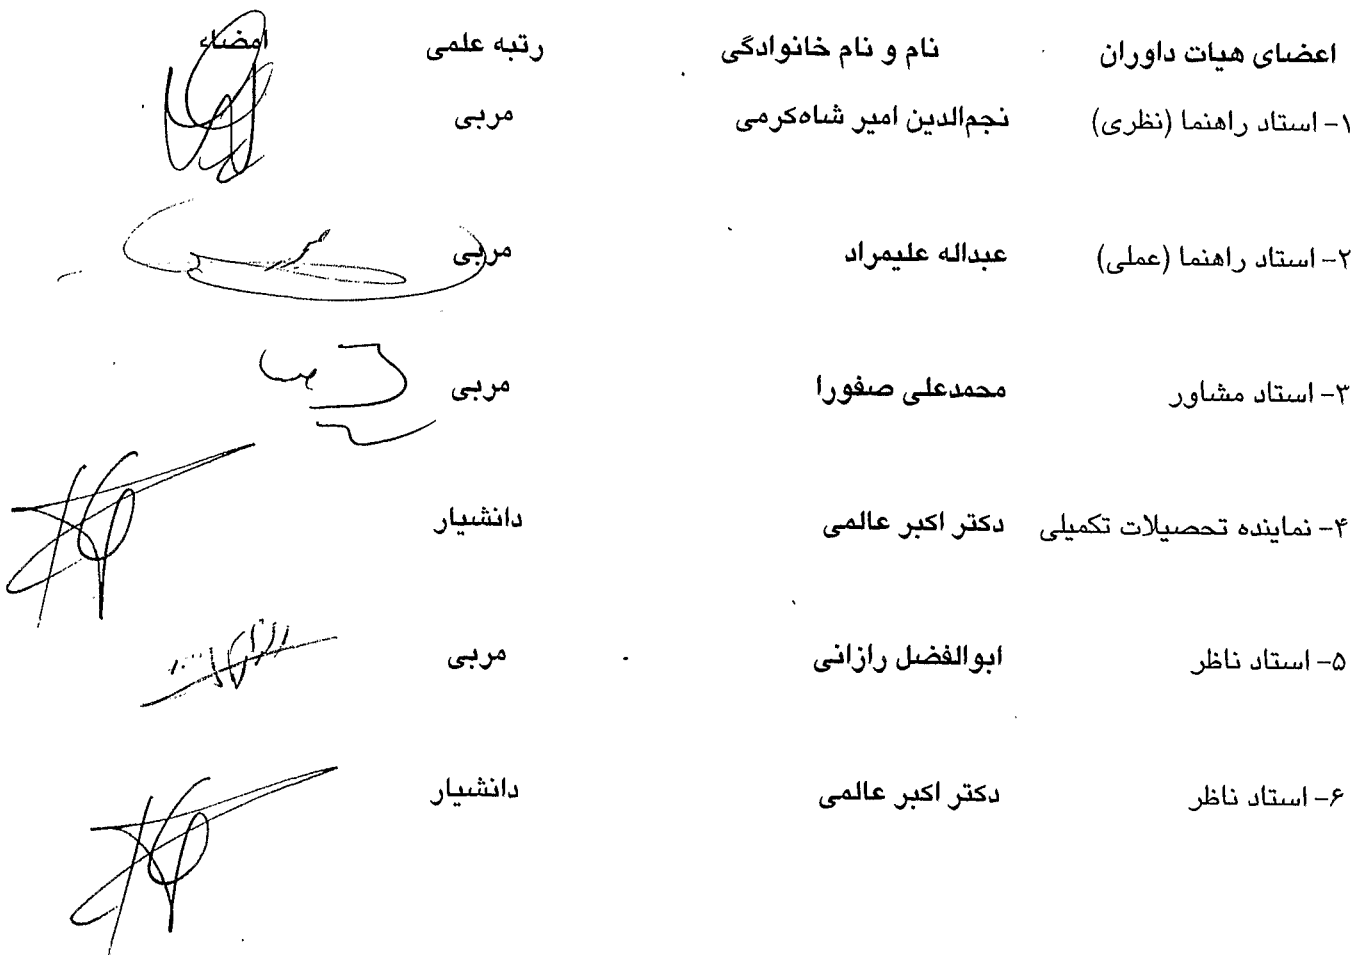 اعضای هیات داوران نام و نام خانوادگی رتبه علمی امضاء
۱- استاد راهنما (نظری) نجم‌الدین امیر شاه‌کرمی مربی
۲- استاد راهنما (عملی) عبداله علیمراد مربی
۳- استاد مشاور محمدعلی صفورا مربی
۴- نماینده تحصیلات تکمیلی دکتر اکبر عالمی دانشیار
۵- استاد ناظر ابوالفضل رازانی مربی
۶- استاد ناظر دکتر اکبر عالمی دانشیار